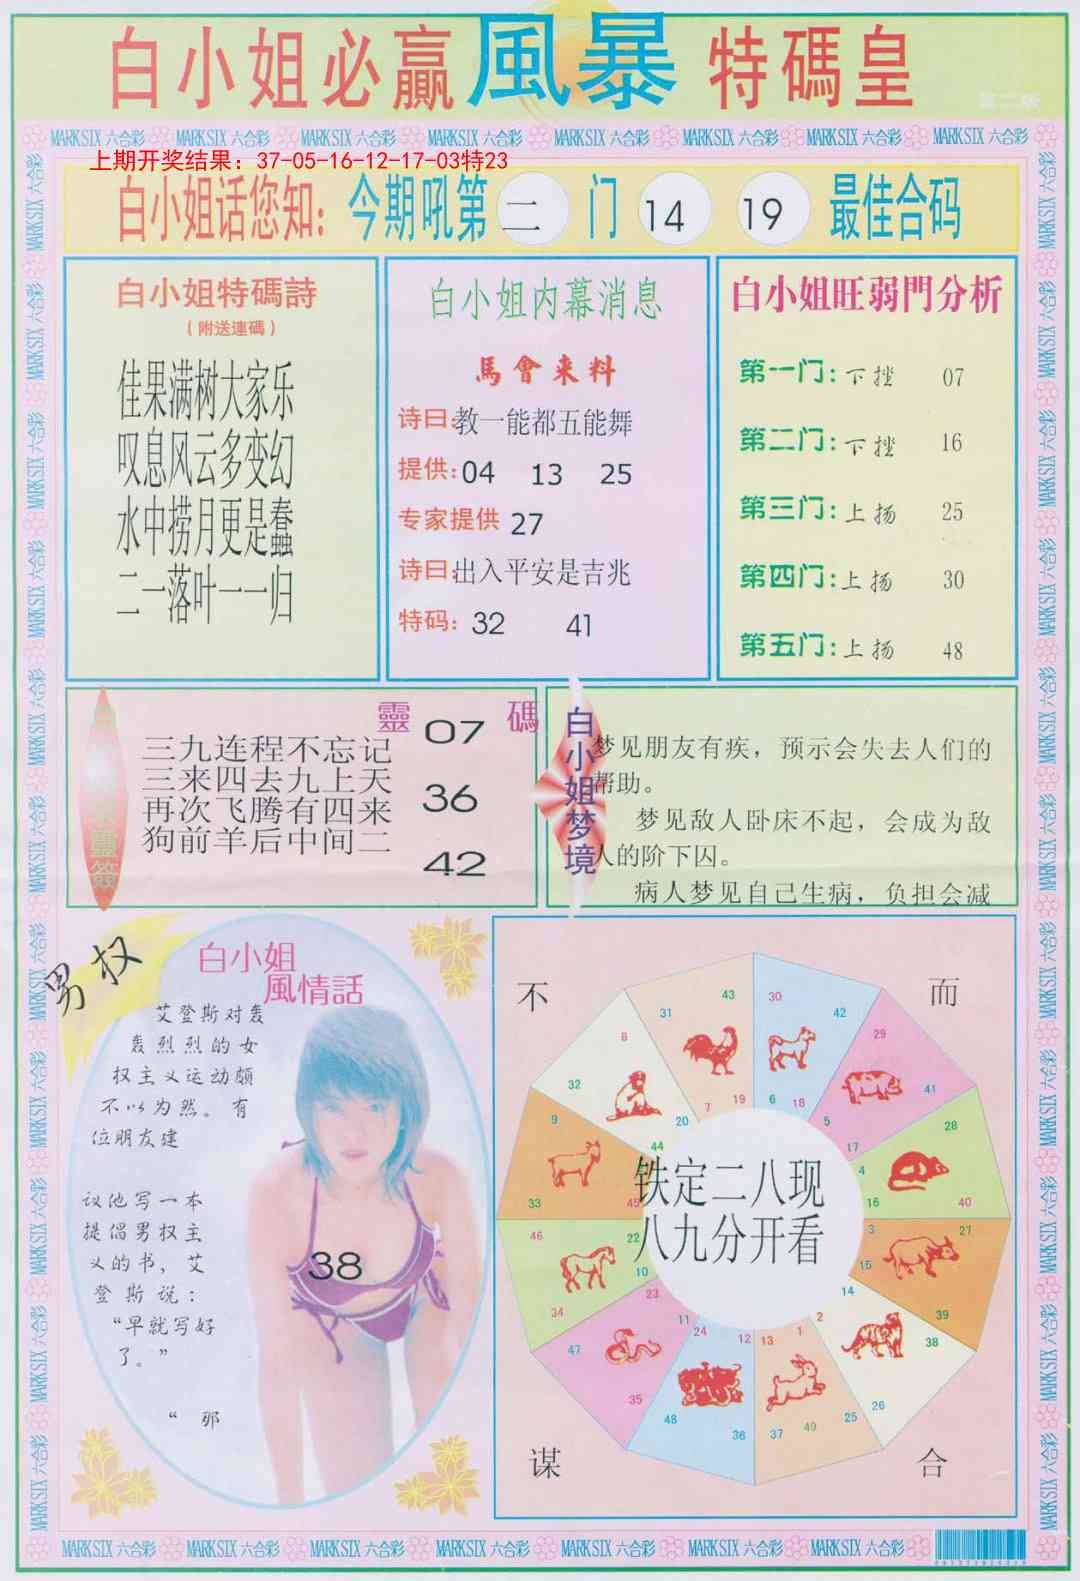 白小姐必贏風暴特碼皇
第二版
MARK SIX 六合彩 MARK SIX 六合彩 MARK SIX 六合彩 MARK SIX 六合彩 MARK SIX 六合彩 MARK SIX 六合彩 MARK SIX 六合彩 MARK SIX 六合彩
上期开奖结果：37-05-16-12-17-03特23
白小姐话您知：今期吼第 二 门 14 19 最佳合码
白小姐特碼詩
（附送連碼）
佳果满树大家乐
叹息风云多变幻
水中捞月更是蠢
二一落叶一一归
白小姐内幕消息
馬會来料
诗曰：教一能都五能舞
提供：04 13 25
专家提供 27
诗曰：出入平安是吉兆
特码：32 41
白小姐旺弱門分析
第一门：下挫 07
第二门：下挫 16
第三门：上扬 25
第四门：上扬 30
第五门：上扬 48
靈簽
靈碼
三九连程不忘记
三来四去九上天
再次飞腾有四来
狗前羊后中间二
07
36
42
白小姐梦境
梦见朋友有疾，预示会失去人们的
帮助。
梦见敌人卧床不起，会成为敌
人的阶下囚。
病人梦见自己生病，负担会减
男权
白小姐
風情話
艾登斯对轰
轰烈烈的女
权主义运动颇
不以为然。有
位朋友建
议他写一本
提倡男权主
义的书，艾
登斯说：
“早就写好
了。”
“ 邪
38
不 而
谋 合
铁定二八现
八九分开看
43 31 19 7
30 42 6 18
29 41 5 17
28 40 4 16
27 39 3 15
2 14 26 38
1 13 25 37 49
12 24 36 48
11 23 35 47
46 34 22 10
9 33 45
8 32 20 44
MARK SIX 六合彩 MARK SIX 六合彩 MARK SIX 六合彩 MARK SIX 六合彩 MARK SIX 六合彩 MARK SIX 六合彩 MARK SIX 六合彩